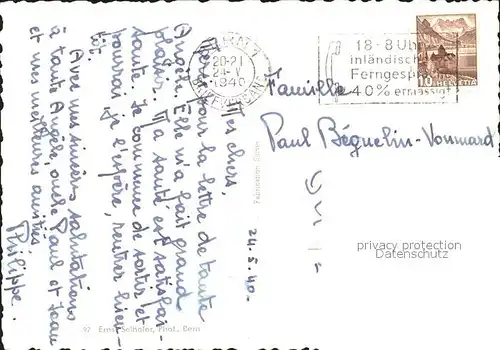 24.5.40.
Mes chers,
Merci pour la lettre de tante
Angèle. Elle m'a fait grand
plaisir. Ma santé est satisfai-
sante. Je commence de sortir et
pourrai, je l'espère, rentrer bien-
tôt.
Avec mes sincères salutations
à tante Angèle, oncle Paul et Jean
et mes meilleurs amitiés
Philippe.
20-21
24.V.
1940
18-8 Uhr
inländische
Ferngespräche
40% ermässigt
10 HELVETIA
Famille
Paul Béguelin-Voumard
privacy protection
DELCAMPE
Ernst Selhofer, Phot., Bern